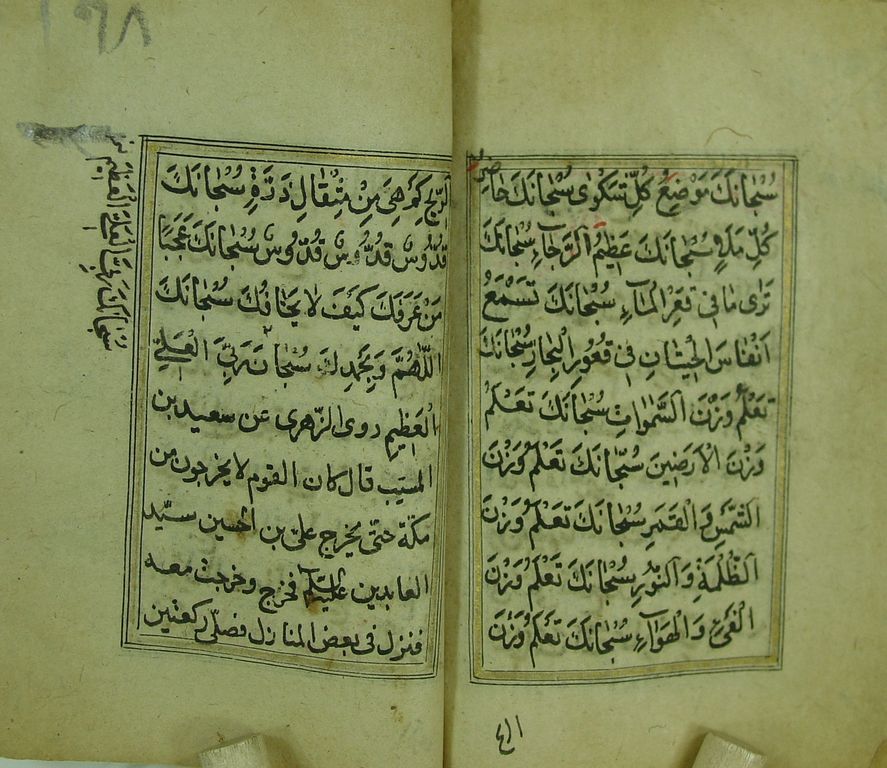 سُبْحَانَكَ مَوْضِعُ كُلِّ شَكْوٰى سُبْحَانَكَ حَاضِرُ
كُلِّ مَلَاءٍ سُبْحَانَكَ عَظِيْمُ الرَّجَاءِ سُبْحَانَكَ
تَرٰى مَا فِي قَعْرِ الْمَاءِ سُبْحَانَكَ تَسْمَعُ
اَنْفَاسَ الْحِيْتَانِ فِي قُعُورِ الْبِحَارِ سُبْحَانَكَ
تَعْلَمُ وَزْنَ السَّمٰوَاتِ سُبْحَانَكَ تَعْلَمُ
وَزْنَ الْاَرَضِيْنَ سُبْحَانَكَ تَعْلَمُ وَزْنَ
الشَّمْسِ وَ الْقَمَرِ سُبْحَانَكَ تَعْلَمُ وَزْنَ
الظُّلْمَةِ وَ النُّوْرِ سُبْحَانَكَ تَعْلَمُ وَزْنَ
الْفَيْءِ وَ الْهَوَاءِ سُبْحَانَكَ تَعْلَمُ وَزْنَ
الرِّيْحِ كَمْ هِيَ مِنْ مِثْقَالِ ذَرَّةٍ سُبْحَانَكَ
قُدُّوسٌ قُدُّوسٌ قُدُّوسٌ سُبْحَانَكَ عَجَبًا
مَنْ عَرَفَكَ كَيْفَ لَا يَخَافُكَ سُبْحَانَكَ
اللّٰهُمَّ وَ بِحَمْدِكَ سُبْحَانَ رَبِّيَ الْعَلِيِّ
الْعَظِيْمِ روى الزّهرى عن سعيد بن
المسيّب قال كان القوم لا يخرجون من
مكّة حتّى يخرج علىّ بن الحسين سيّد
العابدين عليه السلام فخرج و خرجت معه
فنزل فى بعض المنازل فصلّى ركعتين
١٩٨